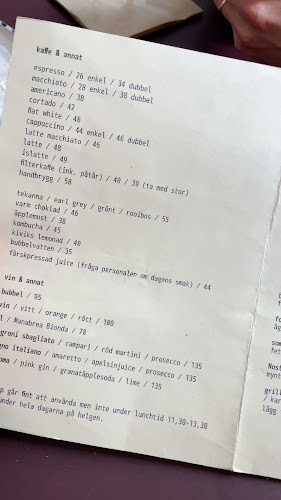 kaffe & annat
espresso / 26 enkel / 34 dubbel
macchiato / 28 enkel / 38 dubbel
americano / 38
cortado / 42
flat white / 46
cappuccino / 44 enkel / 46 dubbel
latte macchiato / 46
latte / 48
islatte / 49
filterkaffe (ink. påtår) / 40 / 39 (ta med stor)
handbrygg / 58
tekanna / earl grey / grönt / rooibos / 55
varm choklad / 46
äpplemust / 38
kombucha / 45
kiviks lemonad / 40
bubbelvatten / 35
färskpressad juice (fråga personalen om dagens smak) / 44
vin & annat
bubbel / 95
vin / vitt / orange / rött / 100
/ Manabrea Bionda / 78
groni sbagliato / campari / röd martini / prosecco / 135
gno italiano / amaretto / apelsinjuice / prosecco / 135
oma / pink gin / granatäpplesoda / lime / 135
p går fint att använda men inte under lunchtid 11,30-13,30
under hela dagarna på helgen.
som
fet
Nost
mynt
gril
/ kar
lägg